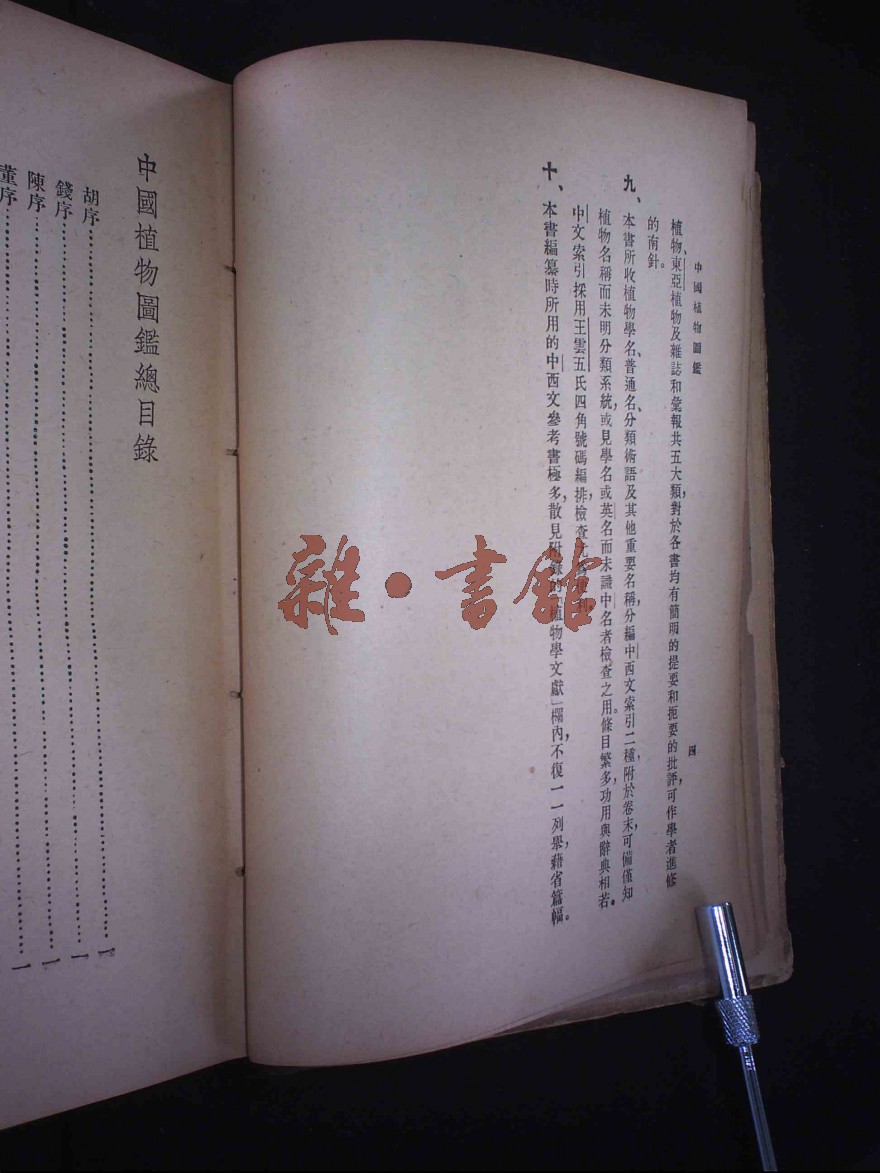 中國植物圖鑑
四
植物、東亞植物及雜誌和彙報共五大類，對於各書均有簡明的提要和扼要的批評，可作學者進修
的南針。
九、本書所收植物學名、普通名、分類術語及其他重要名稱，分編中西文索引二種，附於卷末，可備僅知
植物名稱而未明分類系統，或見學名或英名而未識中名者檢查之用。條目繁多，功用與辭典相若。
中文索引採用王雲五氏四角號碼編排，檢查
十、本書編纂時所用的中西文參考書極多，散見附錄的「植物學文獻」欄內，不復一一列舉，藉省篇幅。
中國植物圖鑑總目錄
胡序……一
錢序……一
陳序……一
董序……一
雜·書館